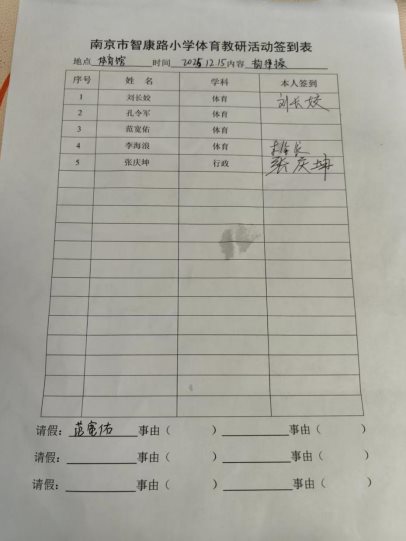 南京市智康路小学体育教研活动签到表
地点 体育馆 时间 2025.12.15 内容
序号 姓 名 学科 本人签到
1 刘长姣 体育 刘长姣
2 孔令军 体育
3 范宽佑 体育
4 李海浪 体育
5 张庆坤 行政 张庆坤
请假：范宽佑 事由（ ） 事由（ ）
请假： 事由（ ） 事由（ ）
请假： 事由（ ） 事由（ ）